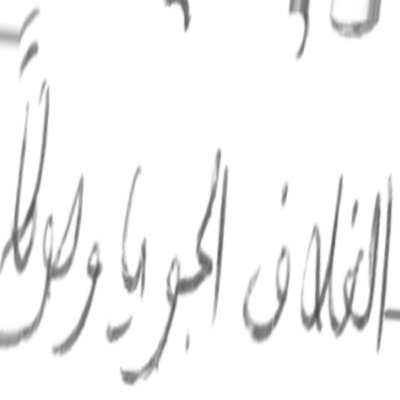 الغلاف الجوي يا وصولاً